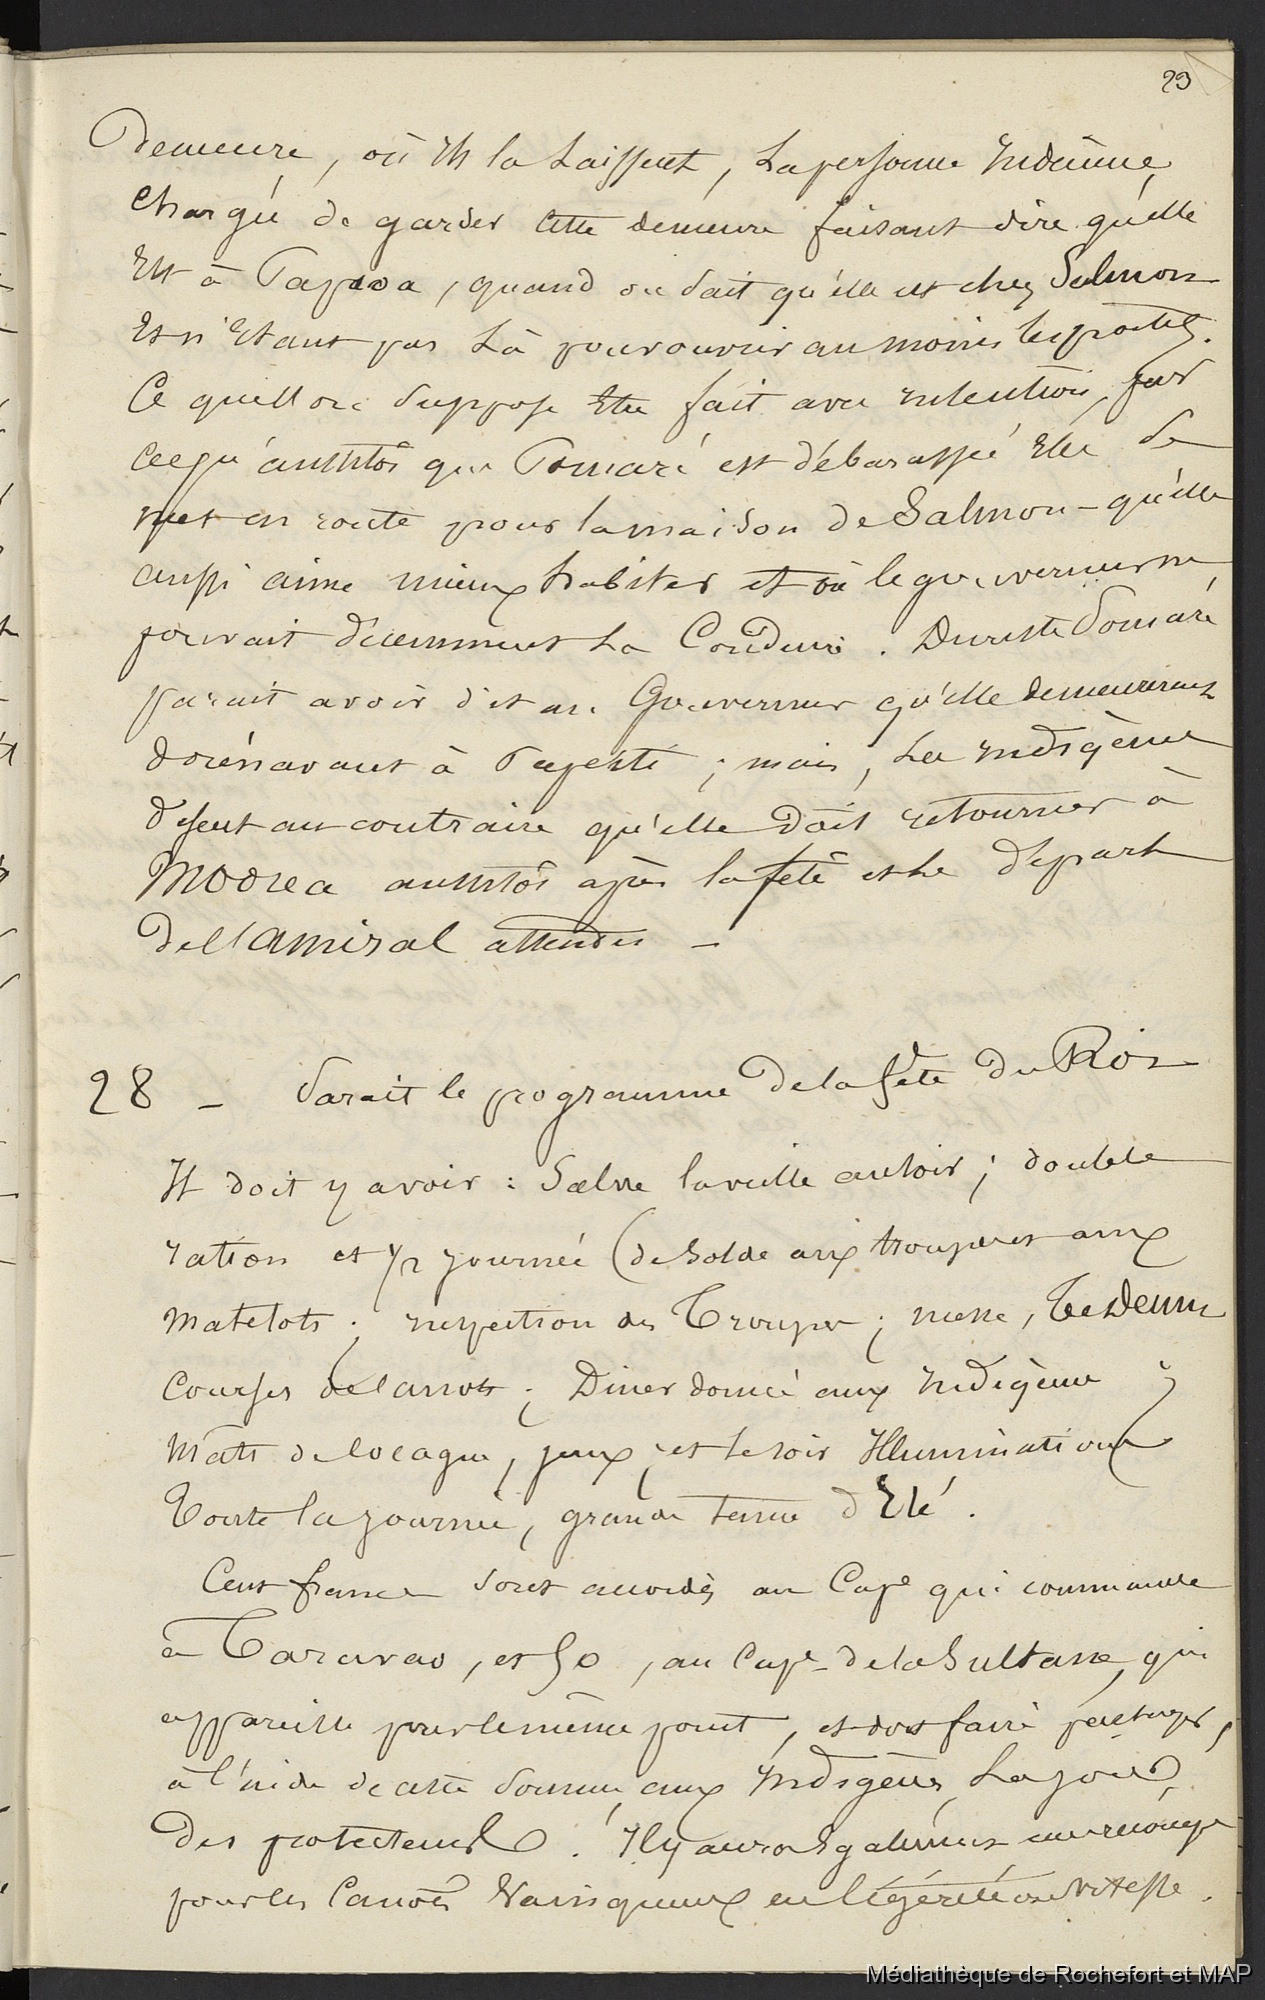 29
demeure, où ils la laissent, la personne indienne
chargée de garder cette demeure faisant dire qu'elle
Est à Papaoa, quand on sait qu'elle est chez Salmon
Et n'Etant pas là pour ouvrir au moins les portes.
Ce que l'on suppose Etre fait avec intention, par
ce qu'aussitôt que Pomaré est débarassée Elle se
met en route pour la maison de Salmon - qu'elle
aussi aime mieux habiter et où le gouverneur ne
pouvait décemment la Conduire. Du reste Pomaré
parait avoir dit au Gouverneur qu'elle demeurerait
dorénavant à Papeete; mais, les indigènes
disent au contraire qu'elle doit retourner à
Moorea aussitôt après la fête et le départ
de l'amiral attendu -
28 - Parait le programme de la fête du Roi
Il doit y avoir: Salve la veille au soir; double
ration et 1/2 journée (de solde aux troupes et aux
matelots; inspection des Troupes; messe, Te Deum
courses de canots; Diner donné aux indigènes;
Mâts de Cocagne, jeux; et le soir Illuminations
Toute la journée, grande tenue d'Eté.
Cent francs sont accordés au Cape qui commande
à Taravao, et 50, au Cape de la Sultane, qui
appareille pour le même point, et doit faire partager,
à l'aide de cette somme, aux indigènes, la joie
des protecteurs. Il y aura Egalement une récompe
pour les Canots Vainqueurs en légéreté ou vitesse.
Médiathèque de Rochefort et MAP